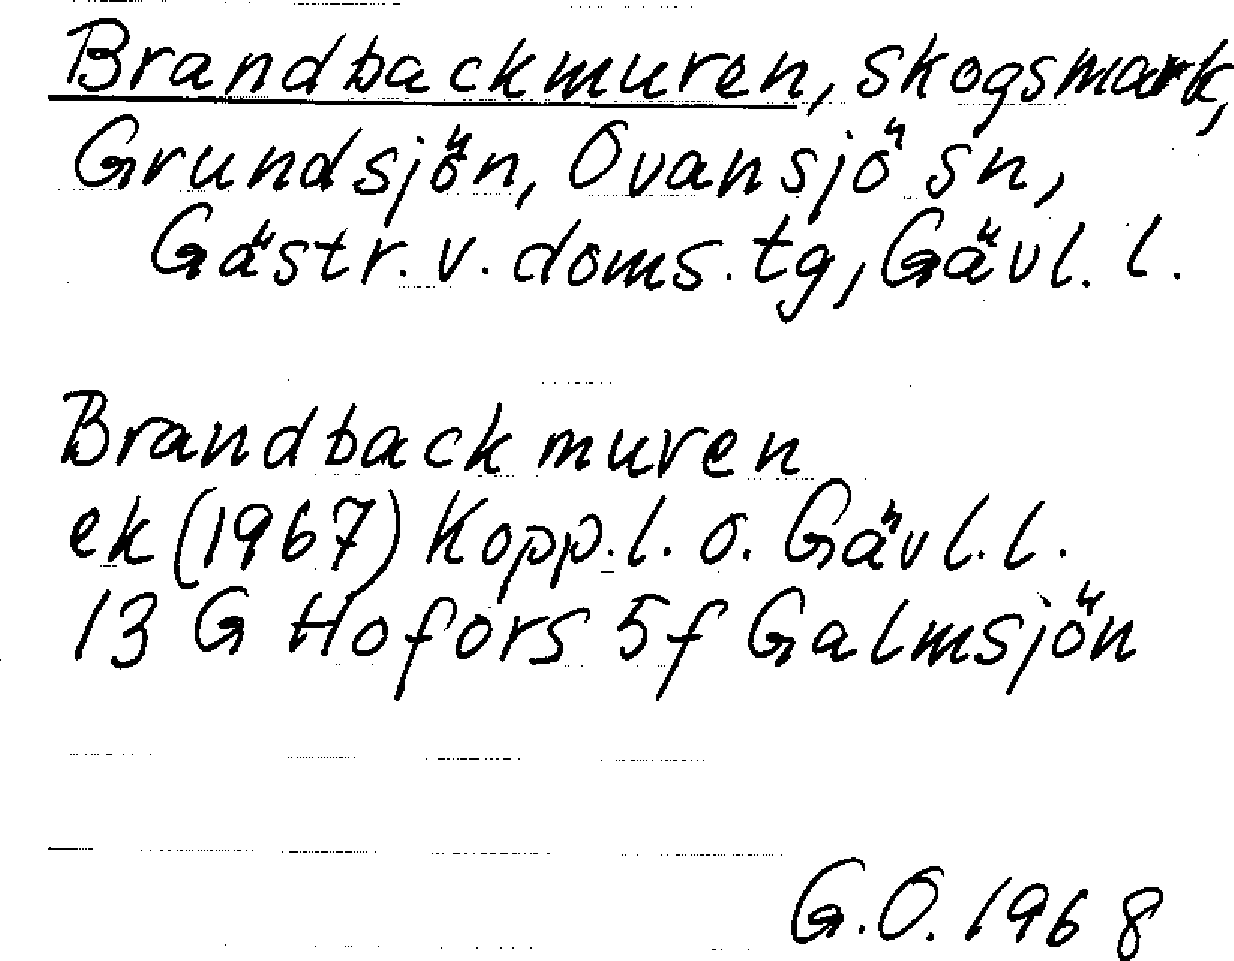 Brandbackmuren, skogsmark,
Grundsjön, Ovansjö sn,
Gästr. v. doms. tg, Gävl. l.
Brandbackmuren
ek (1967) Kopp. l. o. Gävl. l.
13 G Hofors 5f Galmsjön
G.O. 1968